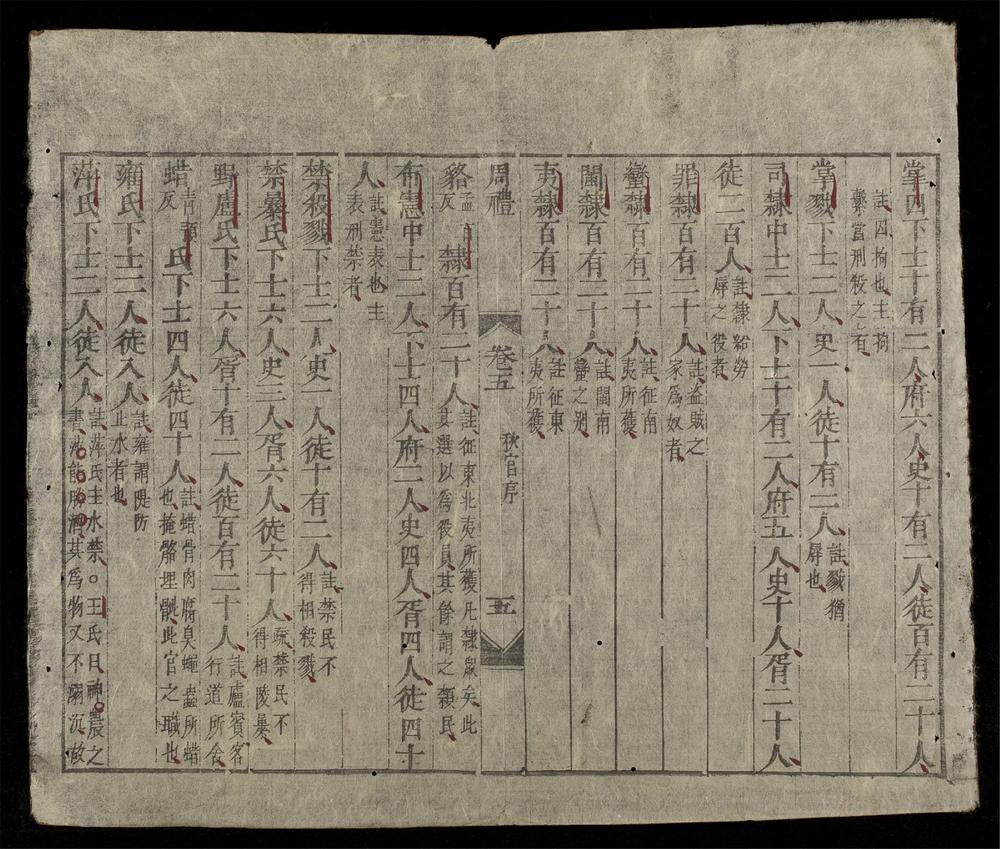 掌囚下士十有二人府六人史十有二人徒百有二十人
註囚拘也主拘
繫當刑殺之者
掌戮下士二人史一人徒十有二人註戮猶
辱也
司隸中士二人下士十有二人府五人史十人胥二十人
徒二百人註隸給勞
辱之役者
罪隸百有二十人註盜賊之
家爲奴者
蠻隸百有二十人註征南
夷所獲
閩隸百有二十人註閩南
蠻之別
夷隸百有二十人註征東
夷所獲
周禮 卷五 秋官序 五
貉孟百
反隸百有二十人註征東北夷所獲凡隸衆矣此
其選以爲役員其餘謂之隸民
布憲中士二人下士四人府二人史四人胥四人徒四十
人註憲表也主
表刑禁者
禁殺戮下士二人史一人徒十有二人註禁民不
得相殺戮
禁暴氏下士六人史三人胥六人徒六十人疏禁民不
得相陵暴
野廬氏下士六人胥十有二人徒百有二十人註廬賓客
行道所舍
蜡清預
反氏下士四人徒四十人註蜡骨肉腐臭蠅蟲所蜡
也掩骼埋骴此官之職也
雍氏下士二人徒八人註雍謂隄防
止水者也
萍氏下士二人徒八人註萍氏主水禁○王氏曰神農之
書萍能勝酒其爲物又不溺沉故